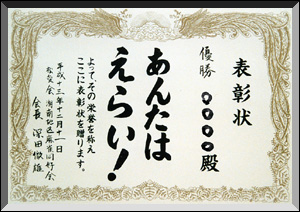 表彰状
優勝
○○○○殿
あんたは
えらい！
よって、その栄誉を称え
ここに表彰状を贈ります。
平成十三年十二月十一日
湖南地区麻雀同好会
会長 深田俊雄